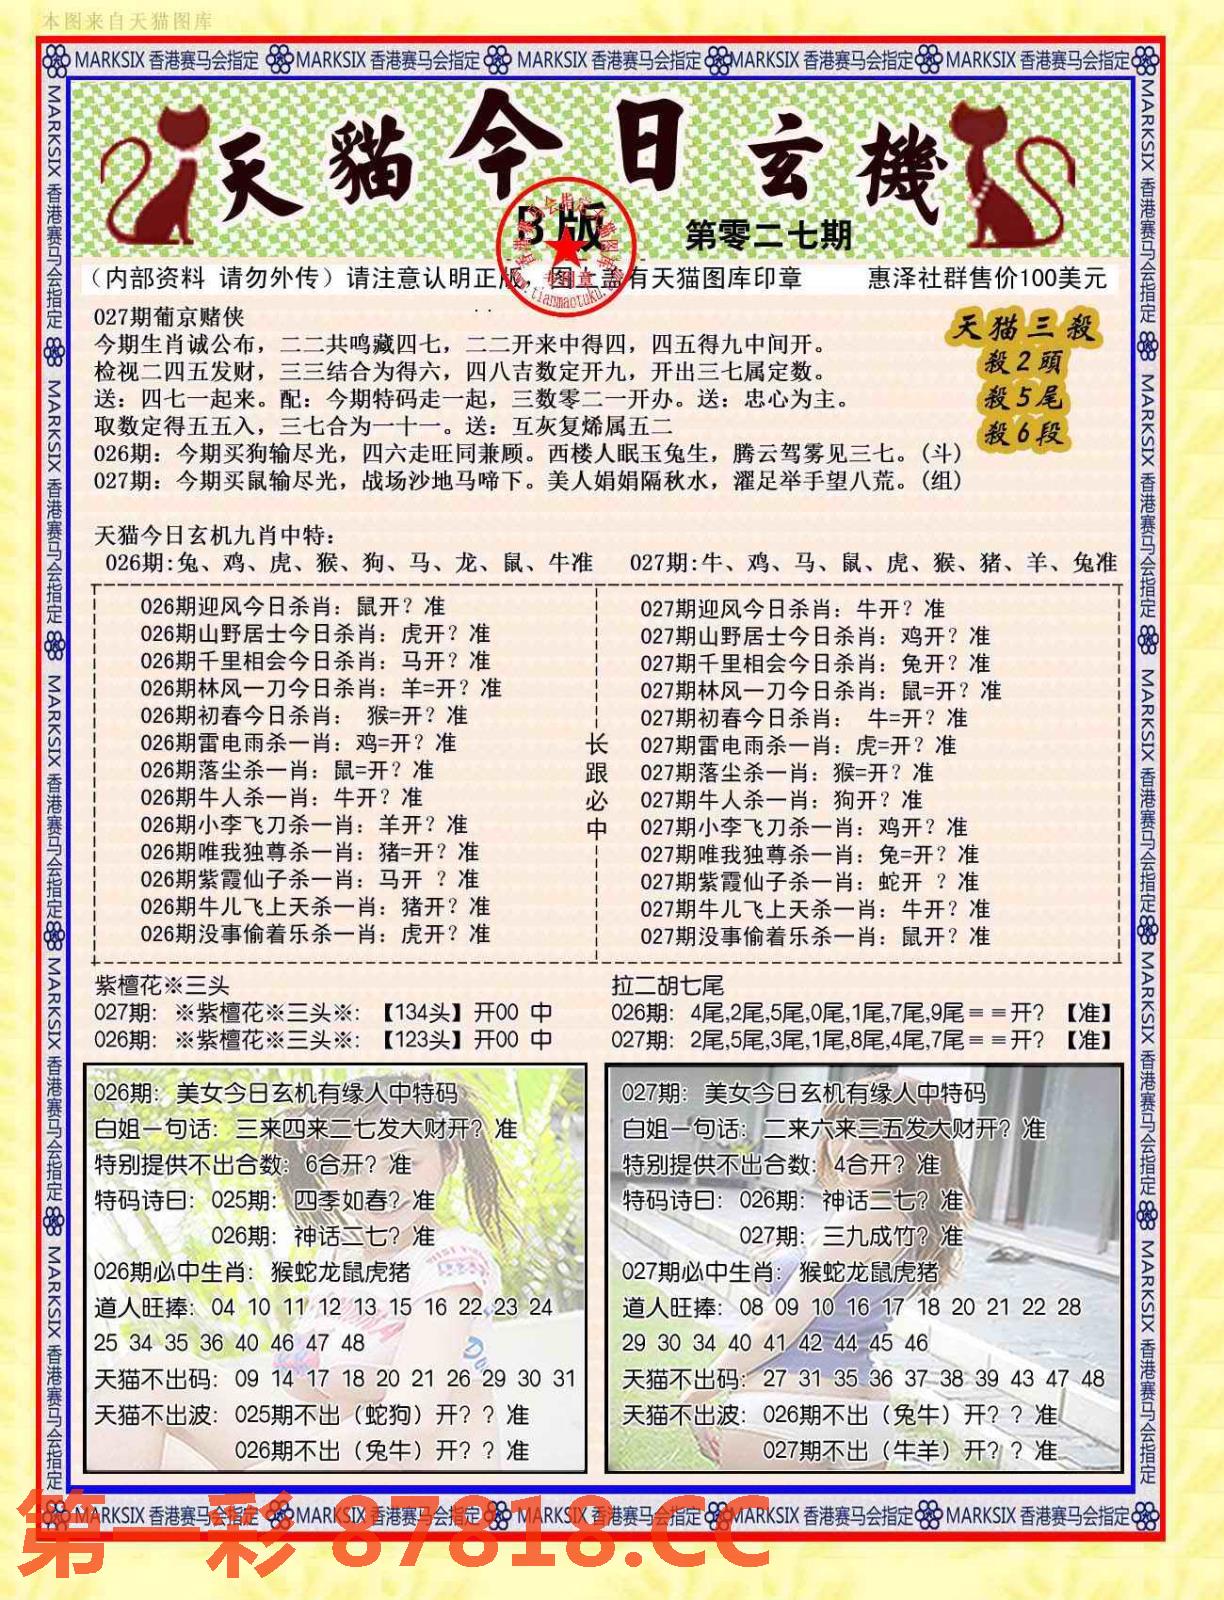 本图来自天猫图库
MARKSIX 香港赛马会指定 MARKSIX 香港赛马会指定 MARKSIX 香港赛马会指定 MARKSIX 香港赛马会指定 MARKSIX 香港赛马会指定
天貓今日玄機
B版 第零二七期
（内部资料 请勿外传）请注意认明正版 图上盖有天猫图库印章 惠泽社群售价100美元
专用章
www.tianmaotuku.com
027期葡京赌侠
今期生肖诚公布，二二共鸣藏四七，二二开来中得四，四五得九中间开。
检视二四五发财，三三结合为得六，四八吉数定开九，开出三七属定数。
送：四七一起来。配：今期特码走一起，三数零二一开办。送：忠心为主。
取数定得五五入，三七合为一十一。送：互灰复烯属五二
026期：今期买狗输尽光，四六走旺同兼顾。西楼人眠玉兔生，腾云驾雾见三七。(斗)
027期：今期买鼠输尽光，战场沙地马啼下。美人娟娟隔秋水，濯足举手望八荒。(组)
天猫三殺
殺2頭
殺5尾
殺6段
天猫今日玄机九肖中特：
026期:兔、鸡、虎、猴、狗、马、龙、鼠、牛准 027期:牛、鸡、马、鼠、虎、猴、猪、羊、兔准
026期迎风今日杀肖：鼠开？准
026期山野居士今日杀肖：虎开？准
026期千里相会今日杀肖：马开？准
026期林风一刀今日杀肖：羊=开？准
026期初春今日杀肖： 猴=开？准
026期雷电雨杀一肖：鸡=开？准
026期落尘杀一肖：鼠=开？准
026期牛人杀一肖：牛开？准
026期小李飞刀杀一肖：羊开？准
026期唯我独尊杀一肖：猪=开？准
026期紫霞仙子杀一肖：马开 ？准
026期牛儿飞上天杀一肖：猪开？准
026期没事偷着乐杀一肖：虎开？准
长跟必中
027期迎风今日杀肖：牛开？准
027期山野居士今日杀肖：鸡开？准
027期千里相会今日杀肖：兔开？准
027期林风一刀今日杀肖：鼠=开？准
027期初春今日杀肖： 牛=开？准
027期雷电雨杀一肖：虎=开？准
027期落尘杀一肖：猴=开？准
027期牛人杀一肖：狗开？准
027期小李飞刀杀一肖：鸡开？准
027期唯我独尊杀一肖：兔=开？准
027期紫霞仙子杀一肖：蛇开 ？准
027期牛儿飞上天杀一肖：牛开？准
027期没事偷着乐杀一肖：鼠开？准
紫檀花※三头
027期：※紫檀花※三头※：【134头】开00 中
026期：※紫檀花※三头※：【123头】开00 中
拉二胡七尾
026期：4尾,2尾,5尾,0尾,1尾,7尾,9尾＝＝开？【准】
027期：2尾,5尾,3尾,1尾,8尾,4尾,7尾＝＝开？【准】
026期：美女今日玄机有缘人中特码
白姐一句话：三来四来二七发大财开？准
特别提供不出合数：6合开？准
特码诗曰：025期：四季如春？准
026期：神话二七？准
026期必中生肖：猴蛇龙鼠虎猪
道人旺捧：04 10 11 12 13 15 16 22 23 24
25 34 35 36 40 46 47 48
天猫不出码：09 14 17 18 20 21 26 29 30 31
天猫不出波：025期不出（蛇狗）开？？准
026期不出（兔牛）开？？准
027期：美女今日玄机有缘人中特码
白姐一句话：二来六来三五发大财开？准
特别提供不出合数：4合开？准
特码诗曰：026期：神话二七？准
027期：三九成竹？准
027期必中生肖：猴蛇龙鼠虎猪
道人旺捧：08 09 10 16 17 18 20 21 22 28
29 30 34 40 41 42 44 45 46
天猫不出码：27 31 35 36 37 38 39 43 47 48
天猫不出波：026期不出（兔牛）开？？准
027期不出（牛羊）开？？准
MARKSIX 香港赛马会指定 MARKSIX 香港赛马会指定 MARKSIX 香港赛马会指定 MARKSIX 香港赛马会指定 MARKSIX 香港赛马会指定
MARKSIX 香港赛马会指定 MARKSIX 香港赛马会指定 MARKSIX 香港赛马会指定 MARKSIX 香港赛马会指定 MARKSIX 香港赛马会指定
MARKSIX 香港赛马会指定 MARKSIX 香港赛马会指定 MARKSIX 香港赛马会指定 MARKSIX 香港赛马会指定 MARKSIX 香港赛马会指定
第一彩 87818.CC